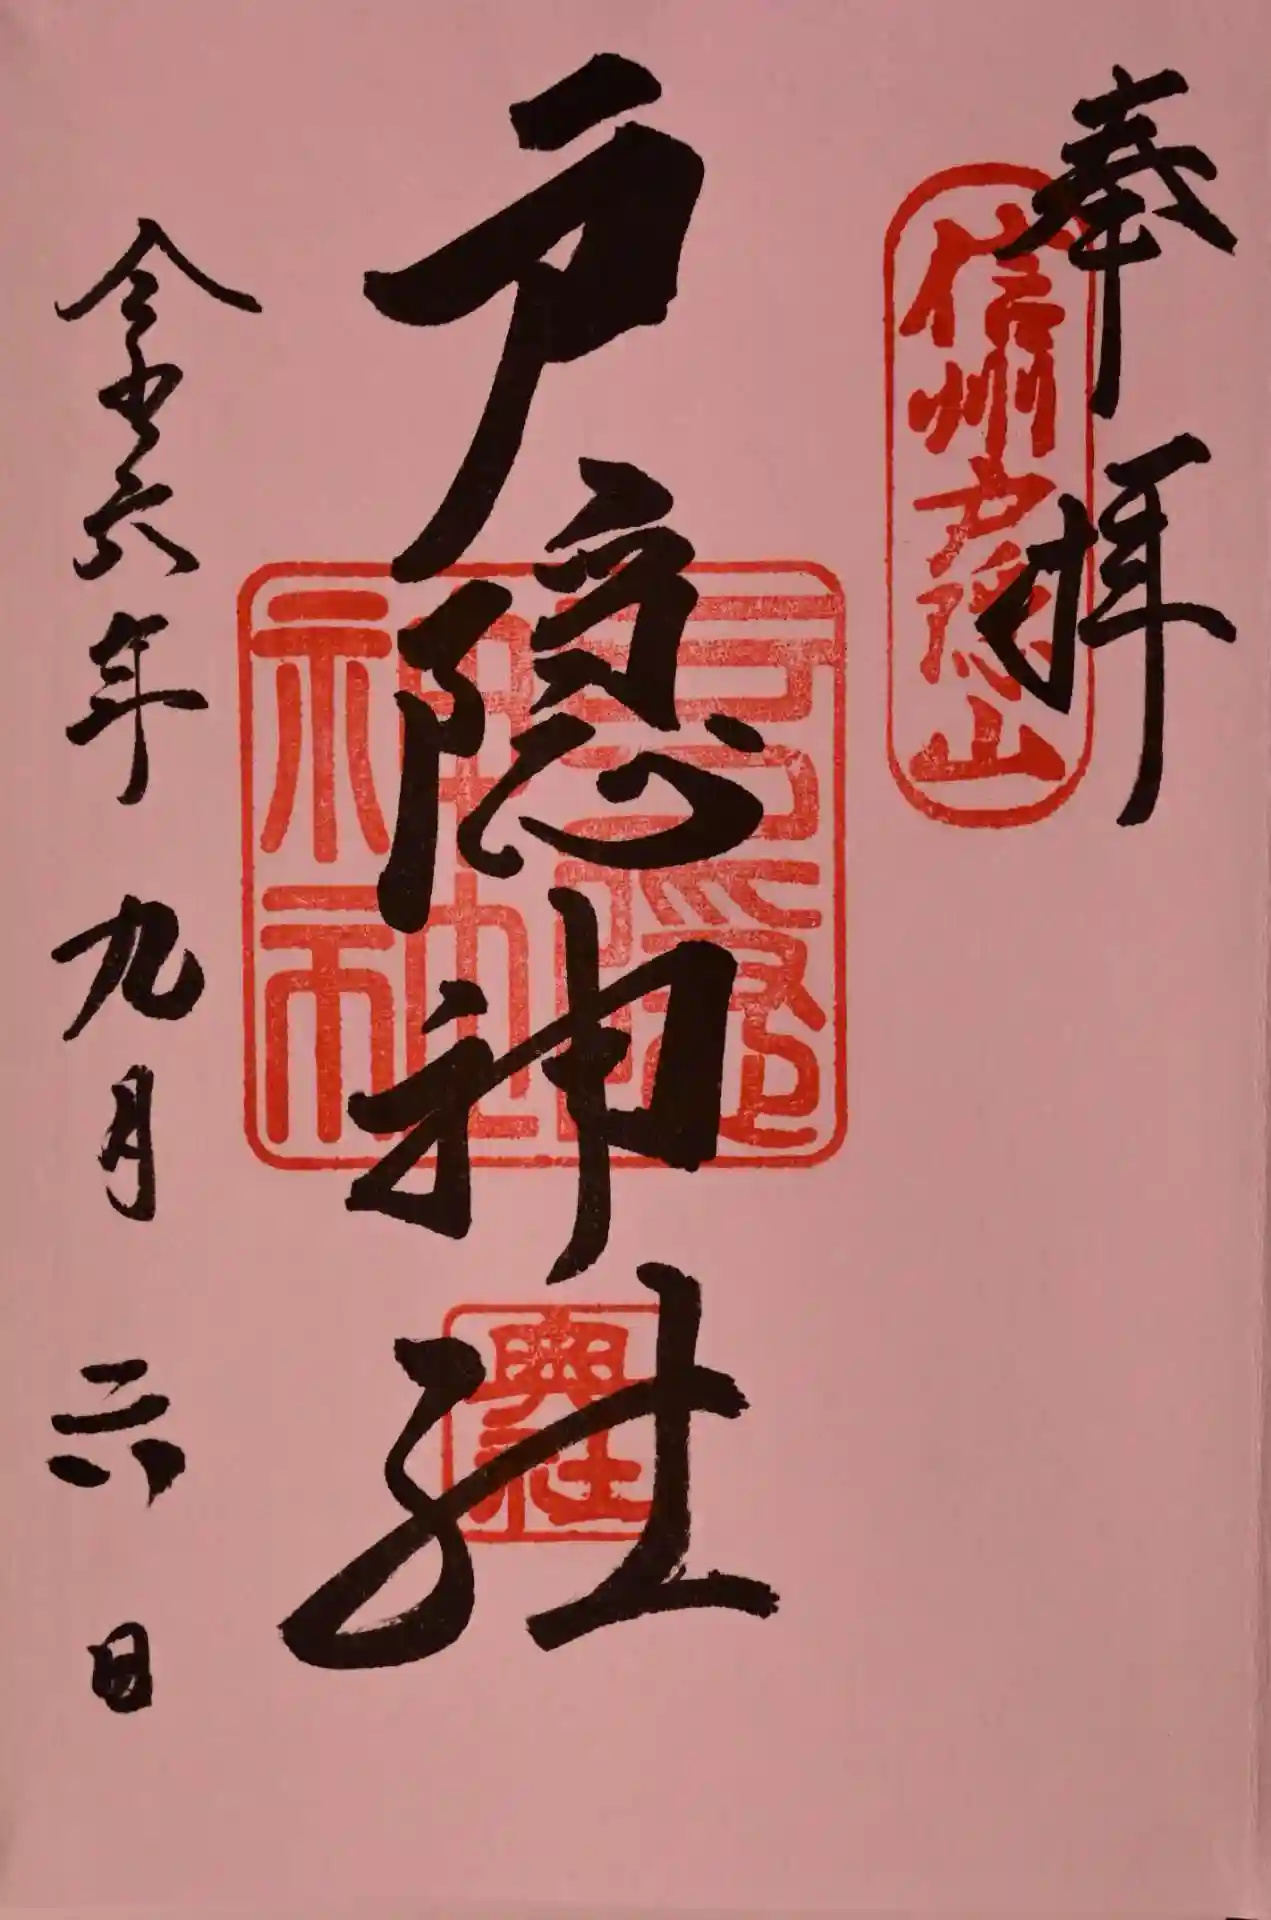 奉拝
信州戸隠山
戸隠神社
戸隠
神社
奥社
令和六年 九月 六日